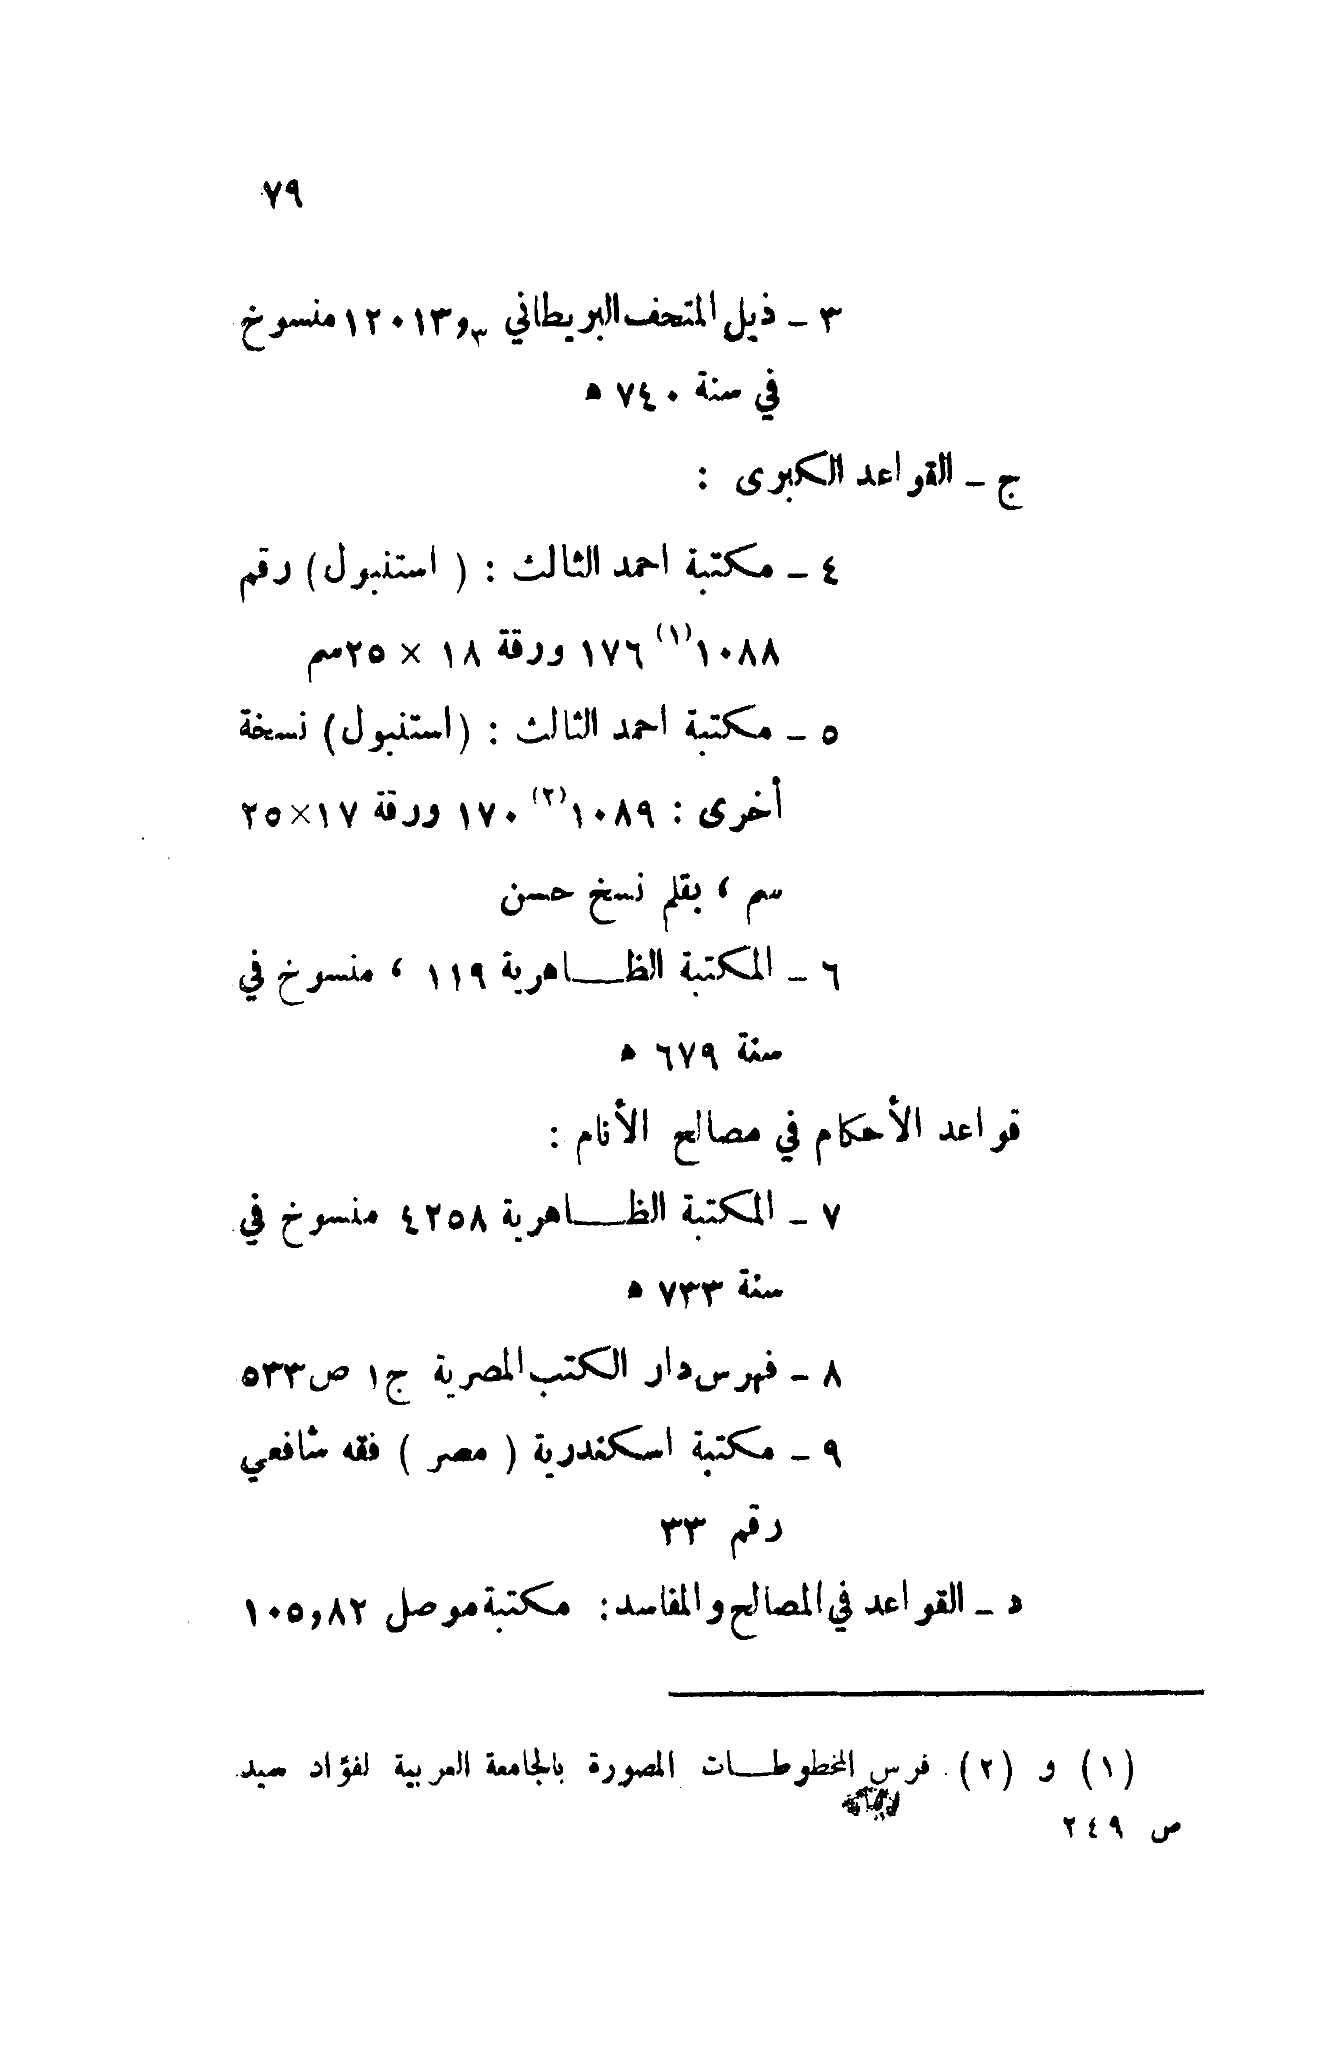 ٧٩
٣ ـ ذيل المتحف البريطاني ٣و١٢٠١٣ منسوخ
في سنة ٧٤٠ ه
ج ـ القواعد الكبرى :
٤ ـ مكتبة احمد الثالث : ( استنبول ) رقم
١٠٨٨(١) ١٧٦ ورقة ١٨ × ٢٥سم
٥ ـ مكتبة احمد الثالث : (استنبول) نسخة
أخرى : ١٠٨٩(٢) ١٧٠ ورقة ١٧×٢٥
سم ، بقلم نسخ حسن
٦ ـ المكتبة الظـــاهرية ١١٩ ، منسوخ في
سنة ٦٧٩ ه
قواعد الأحكام في مصالح الأنام :
٧ ـ المكتبة الظـــاهرية ٤٢٥٨ منسوخ في
سنة ٧٣٣ ه
٨ ـ فهرس دار الكتب المصرية ج١ ص٥٣٣
٩ ـ مكتبة اسكندرية ( مصر ) فقه شافعي
رقم ٣٣
د ـ القواعد في المصالح والمفاسد: مكتبة موصل ١٠٥,٨٢
(١) و (٢) فرس المخطوطـــات المصورة بالجامعة العربية لفؤاد سيد
ص ٢٤٩